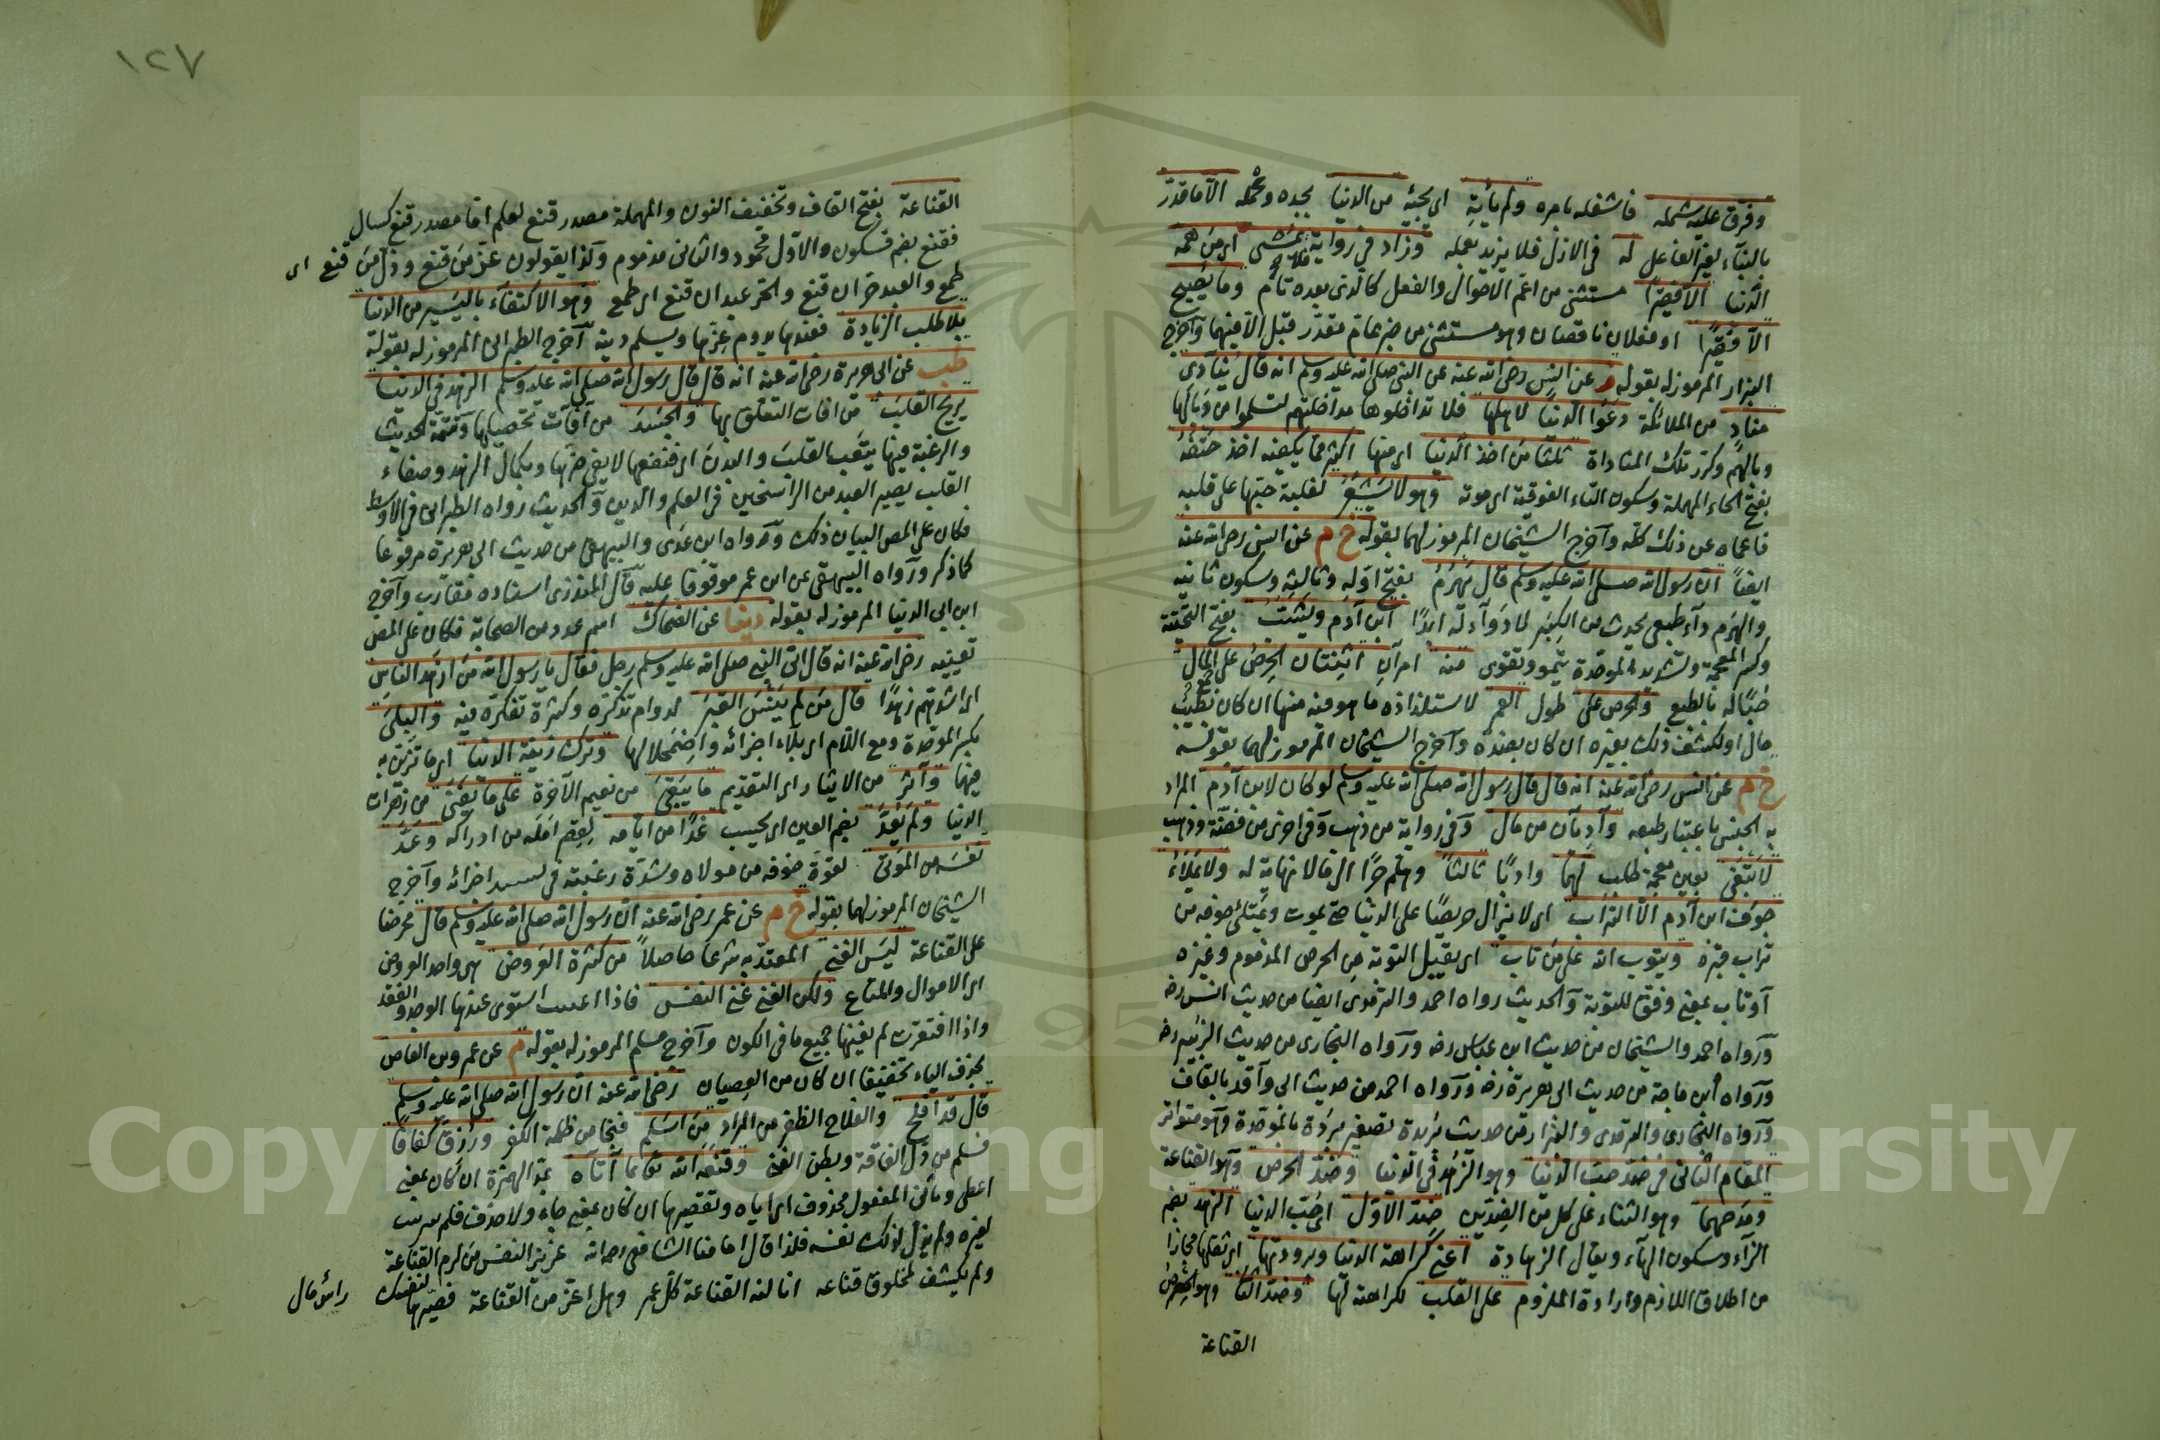 وفرق عليه شمله فاشغله بامره ولم يأتيه اى يجيئه من الدنيا بجده وعمله الاّ ما قدّر
بالبناء لغير الفاعل له فى الازل فلا يزيد بعمله وزاد في رواية فلا يمسى اى من همه
الدنيا الاّ فقيرًا مستثنى من اعم الاحوال والفعل كالذى بعده تام وما يصبح
الاّ فقيرًا او فعلان ناقصان وهو مستثنى من خبر عام مقدّر قبل الاّ فيهما وآخرج
البزار المرموز له بقوله عن انس رضى الله عنه عن النبى صلى الله عليه وسلم انه قال ينادى
مناد من الملائكة دعوا الدنيا لاهلها فلا تداخلوها مداخلتهم لتسلموا من وبالها
وبالهم وكرر تلك المناداة ثلثا من اخذ الدنيا اى منها اكثر مما يكفيه اخذ حتفه
بفتح الحاء المهملة وسكون التاء الفوقية اى موته وهو لا يشعر لغلبة حبها على قلبه
فاعماه عن ذلك كله وآخرج الشيخان المرموز لهما بقوله خ م عن انس رضى الله عنه
ايضا ان رسول الله صلى الله عليه وسلم قال يهرم بفتح اوّله وثالثه وسكون ثانيه
والهرم داء طبعى يحدث من الكبر لا دواء له ابدًا ابن آدم ويشب بفتح التحتية
وكسر المعجمة وتشديد الموحدة ينمو ويقوى منه امران اثنتان الحرص على المال
حبًا له بالطبع والحرص على طول العمر لاستلذاذه ما هو فيه منها ان كان
مال او لكشف ذلك بغيره ان كان بعنده وآخرج الشيخان المرموز لهما بقوله
خ م عن انس رضى الله عنه انه قال قال رسول الله صلى الله عليه وسلم لو كان لابن آدم المراد
به الجنس باعتبار طبعه واديان من مال وفى رواية من ذهب وفى اخرى من فضة وذهب
لابتغى بغين معجمة طلب لهما واديًا ثالثًا وهلم جرّا الى ما لا نهاية له ولا يملاء
جوف ابن آدم الاّ التراب اى لا يزال حريصًا على الدنيا حتى يموت ويمتلئ جوفه من
تراب قبره ويتوب الله على من تاب اى يقبل التوبة من الحرص المذموم وغيره
آو تاب بمعنى وفق للتوبة والحديث رواه احمد والترمذى ايضا من حديث انس رضه
ورواه احمد والشيخان من حديث ابن عباس رضه ورواه البخارى من حديث الزبير رضه
ورواه ابن ماجة من حديث ابى هريرة رضه ورواه احمد من حديث ابى واقد بالقاف
ورواه البخارى والترمذى والبزار من حديث بريدة تصغير بردة بالموحدة وهو متواتر
المقام الثانى فى ضد حب الدنيا وهو الزهد فى الدنيا وضد الحرص وهو القناعة
ومدحهما وهو الثناء على كل من الضدين ضد الاوّل اى حب الدنيا الزهد بضم
الزاء وسكون الهاء ويقال الزهادة اعنى كراهة الدنيا وبرودتها اى ثقلها مجازا
من اطلاق اللازم وارادة الملزوم على القلب لكراهته لها وضد الثانى وهو الحرص
القناعة
١٢٧
القناعة بفتح القاف وتخفيف النون والمهملة مصدر قنع لعلم اما مصدر قنع كسال
فقنع بضم فسكون والاوّل محمود والثانى مذموم وكذا يقولون عز من قنع وذل من قنع اى
طمع والعبد حر ان قنع والحر عبد ان قنع اى طمع وهو الاكتفاء باليسير من الدنيا
بلا طلب الزيادة فعندها يدوم عزها ويسلم دينه آخرج الطبرانى المرموز له بقوله
طب عن ابى هريرة رضى الله عنه انه قال قال رسول الله صلى الله عليه وسلم الزهد فى الدنيا
يريح القلب من افات التعلق بها والجسد من آفات تحصيلها وتتمة الحديث
والرغبة فيها يتعب القلب والبدن اى فنفعها لا يفى ضرّها وبكمال الزهد وصفاء
القلب يصير العبد من الراسخين فى العلم والدين والحديث رواه الطبرانى فى الاوسط
فكان على المص البيان ذلك ورواه ابن عدى والبيهقى من حديث ابى هريرة مرفوعا
كما ذكر ورواه البيهقى عن ابن عمر موقوفا عليه قال المنذرى اسناده مقارب وآخرج
ابن ابى الدنيا المرموز له بقوله دنيا عن الضحاك اسم عدد من الصحابة فكان على المص
تعيينه رضى الله عنه انه قال اتى النبى صلى الله عليه وسلم رجل فقال يا رسول الله من ازهد الناس
اى اشدّهم زهدًا قال من لم ينس القبر لدوام تذكره وكثرة تفكره فيه والبلى
بكسر الموحدة ومع اللام اى بلاء اجزائه واضمحلالها وترك زينة الدنيا اى ما تزين به
فيها وآثر من الايثار اى التقديم ما يبقى من نعيم الآخرة على ما يفنى من زهرات
الدنيا ولم يعد بضم العين اى يحسب غدًا من ايامه لقصر امله من ادراكه وعدّ
نفسه من الموتى لقوة خوفه من مولاه وشدّة رغبته فى اجزائه وآخرج
الشيخان المرموز لهما بقوله خ م عن عمر رضى الله عنه ان رسول الله صلى الله عليه وسلم قال محرضا
على القناعة ليس الغنى المعتد به شرعا حاصلاً من كثرة العروض هى واحد العروض
اى الاموال والمتاع ولكن الغنى غنى النفس فاذا استوى عندها الوجد والفقد
واذا افتقرت لم يغنها جميع ما فى الكون وآخرج مسلم المرموز له بقوله م عن عمرو بن العاص
بحذف الياء تخفيفا ان كان من العصيان رضى الله عنه ان رسول الله صلى الله عليه وسلم
قال قد افلح والفلاح الظفر من المراد من اسلم فنجا من ظلمة الكفر ورزق كفافا
فسلم من ذل الفاقة وبطر الغنى وقنعه الله بما آتاه بمد الهمزة ان كان بمعنى
اعطى وثانى المفعول محذوف اى اياه وتقصيرها ان كان بمعنى جاء ولا حذف فلم
لغيره ولم يزل لذلك نفسه فلذا قال امامنا الشافعى رحمه الله عزيز النفس من لزم القناعة
ولم يكشف لمخلوق قناعه انا لنه القناعة كل عمر وهل اعز من القناعة فصيرها لنفسك رأس مال
Copyright © King Saud University
1957